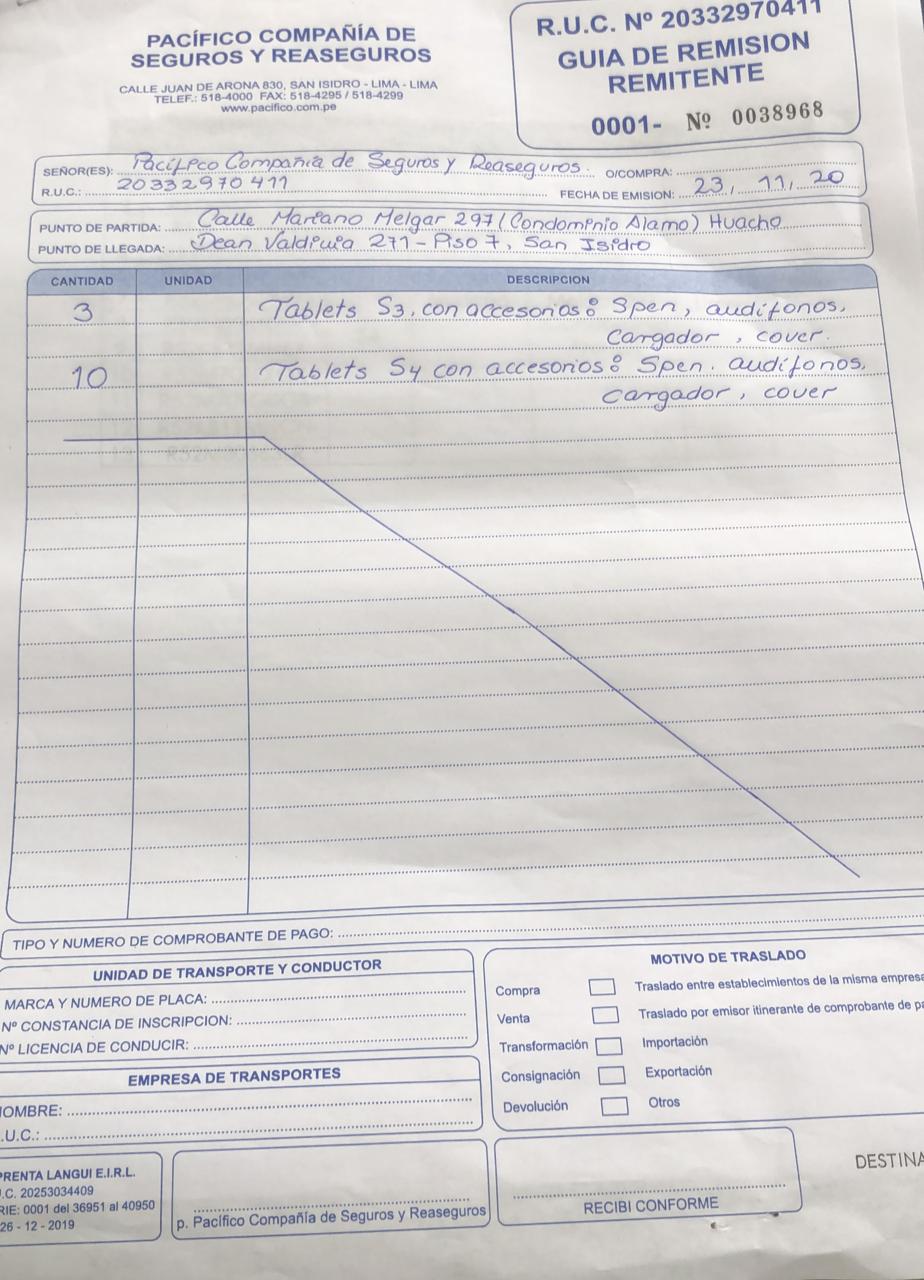 PACÍFICO COMPAÑÍA DE
SEGUROS Y REASEGUROS
CALLE JUAN DE ARONA 830, SAN ISIDRO - LIMA - LIMA
TELEF.: 518-4000 FAX: 518-4295 / 518-4299
www.pacifico.com.pe
R.U.C. Nº 20332970411
GUIA DE REMISION
REMITENTE
0001- Nº 0038968
SEÑOR(ES): Pacífico Compañía de Seguros y Reaseguros. O/COMPRA:
R.U.C.: 20332970411 FECHA DE EMISION: 23, 11, 20
PUNTO DE PARTIDA: Calle Mariano Melgar 297 (Condominio Alamo) Huacho
PUNTO DE LLEGADA: Dean Valdivia 271 - Piso 7, San Isidro
CANTIDAD UNIDAD DESCRIPCION
3 Tablets S3, con accesorios: Spen, audífonos,
Cargador, cover.
10 Tablets S4 con accesorios: Spen. audífonos,
Cargador, cover
TIPO Y NUMERO DE COMPROBANTE DE PAGO:
UNIDAD DE TRANSPORTE Y CONDUCTOR
MARCA Y NUMERO DE PLACA:
Nº CONSTANCIA DE INSCRIPCION:
Nº LICENCIA DE CONDUCIR:
EMPRESA DE TRANSPORTES
NOMBRE:
.U.C.:
MOTIVO DE TRASLADO
Compra Traslado entre establecimientos de la misma empresa
Venta Traslado por emisor itinerante de comprobante de pa
Transformación Importación
Consignación Exportación
Devolución Otros
PRENTA LANGUI E.I.R.L.
.C. 20253034409
RIE: 0001 del 36951 al 40950
26 - 12 - 2019
p. Pacífico Compañía de Seguros y Reaseguros
RECIBI CONFORME
DESTINA